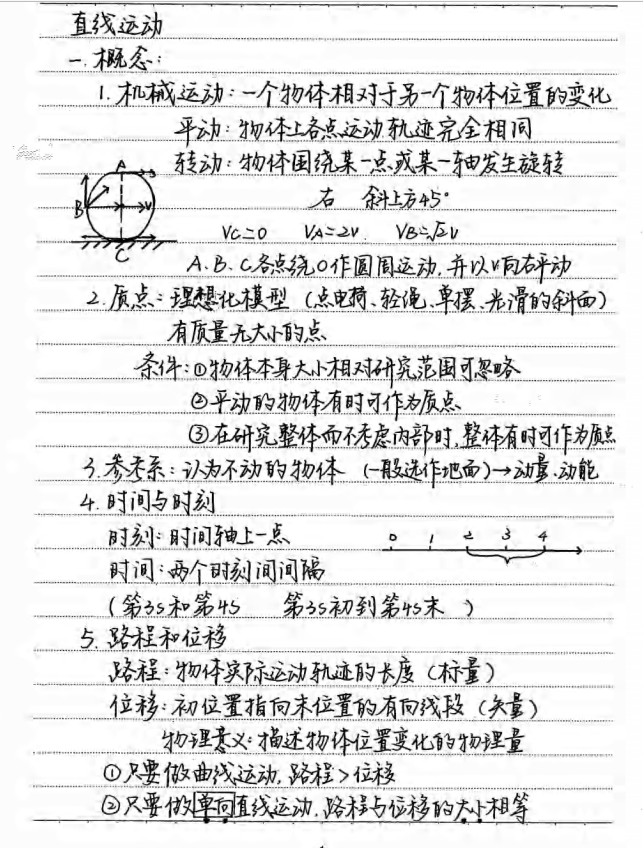 直线运动
一.概念:
1.机械运动:一个物体相对于另一个物体位置的变化
平动:物体上各点运动轨迹完全相同
转动:物体围绕某一点或某一轴发生旋转
A
B
V
C
右 斜上方45°
VC=0 VA=2V VB=√2V
A.B.C各点绕O作圆周运动,并以V向右平动
2.质点:理想化模型(点电荷、轻绳、单摆、光滑的斜面)
有质量无大小的点
条件:①物体本身大小相对研究范围可忽略
②平动的物体有时可作为质点
③在研究整体而不考虑内部时,整体有时可作为质点
3.参考系:认为不动的物体 (一般选作地面)→动量、动能
4.时间与时刻
时刻:时间轴上一点
0 1 2 3 4
时间:两个时刻间间隔
(第3s和第4s 第3s初到第4s末 )
5.路程和位移
路程:物体实际运动轨迹的长度(标量)
位移:初位置指向末位置的有向线段(矢量)
物理意义:描述物体位置变化的物理量
①只要做曲线运动,路程>位移
②只要做单向直线运动,路程与位移的大小相等